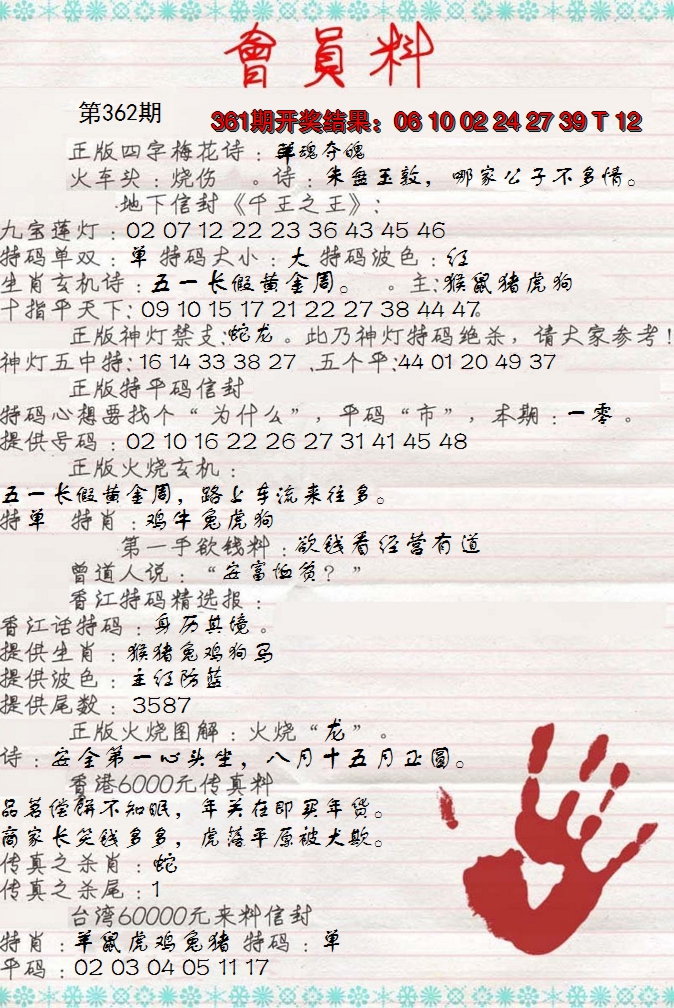 會員料
第362期
361期开奖结果：06 10 02 24 27 39 T 12
正版四字梅花诗：羊魂夺魄
火车头：烧伤 。诗：朱盘玉敦，哪家公子不多情。
地下信封《千王之王》：
九宝莲灯：02 07 12 22 23 36 43 45 46
特码单双：单 特码大小：大 特码波色：红
生肖玄机诗：五一长假黄金周。 。主:猴鼠猪虎狗
十指平天下:09 10 15 17 21 22 27 38 44 47.
正版神灯禁支:蛇龙。此乃神灯特码绝杀，请大家参考!
神灯五中特:16 14 33 38 27 .五个平:44 01 20 49 37
正版特平码信封
特码心想要找个“为什么”，平码“市”，本期：一零。
提供号码：02 10 16 22 26 27 31 41 45 48
正版火烧玄机：
五一长假黄金周，路上车流来往多。
特单 特肖：鸡牛兔虎狗
第一手欲钱料：欲钱看经营有道
曾道人说：“安富恤贫？”
香江特码精选报：
香江话特码：身历其境。
提供生肖：猴猪兔鸡狗马
提供波色：主红防蓝
提供尾数：3587
正版火烧图解：火烧“龙”。
诗：安全第一心头坐，八月十五月正圆。
香港6000元传真料
品茗偿饼不知眠，年关在即买年货。
商家长笑钱多多，虎落平原被犬欺。
传真之杀肖：蛇
传真之杀尾：1
台湾60000元来料信封
特肖：羊鼠虎鸡兔猪 特码：单
平码：02 03 04 05 11 17